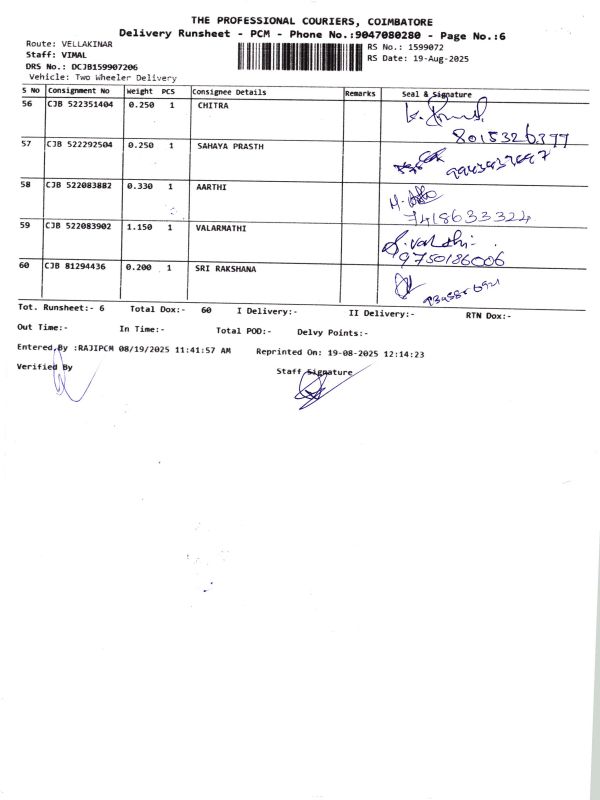 THE PROFESSIONAL COURIERS, COIMBATORE
Delivery Runsheet - PCM - Phone No.:9047080280 - Page No.:6
Route: VELLAKINAR
RS No.: 1599072
Staff: VIMAL
RS Date: 19-Aug-2025
DRS No.: DCJB159907206
Vehicle: Two Wheeler Delivery
S No Consignment No Weight PCS Consignee Details Remarks Seal & Signature
56 CJB 522351404 0.250 1 CHITRA
8015326377
57 CJB 522292504 0.250 1 SAHAYA PRASTH
58 CJB 522083882 0.330 1 AARTHI
7418633324
59 CJB 522083902 1.150 1 VALARMATHI
9750186006
60 CJB 81294436 0.200 1 SRI RAKSHANA
Tot. Runsheet:- 6 Total Dox:- 60 I Delivery:- II Delivery:- RTN Dox:-
Out Time:- In Time:- Total POD:- Delvy Points:-
Entered By :RAJIPCM 08/19/2025 11:41:57 AM Reprinted On: 19-08-2025 12:14:23
Verified By Staff Signature